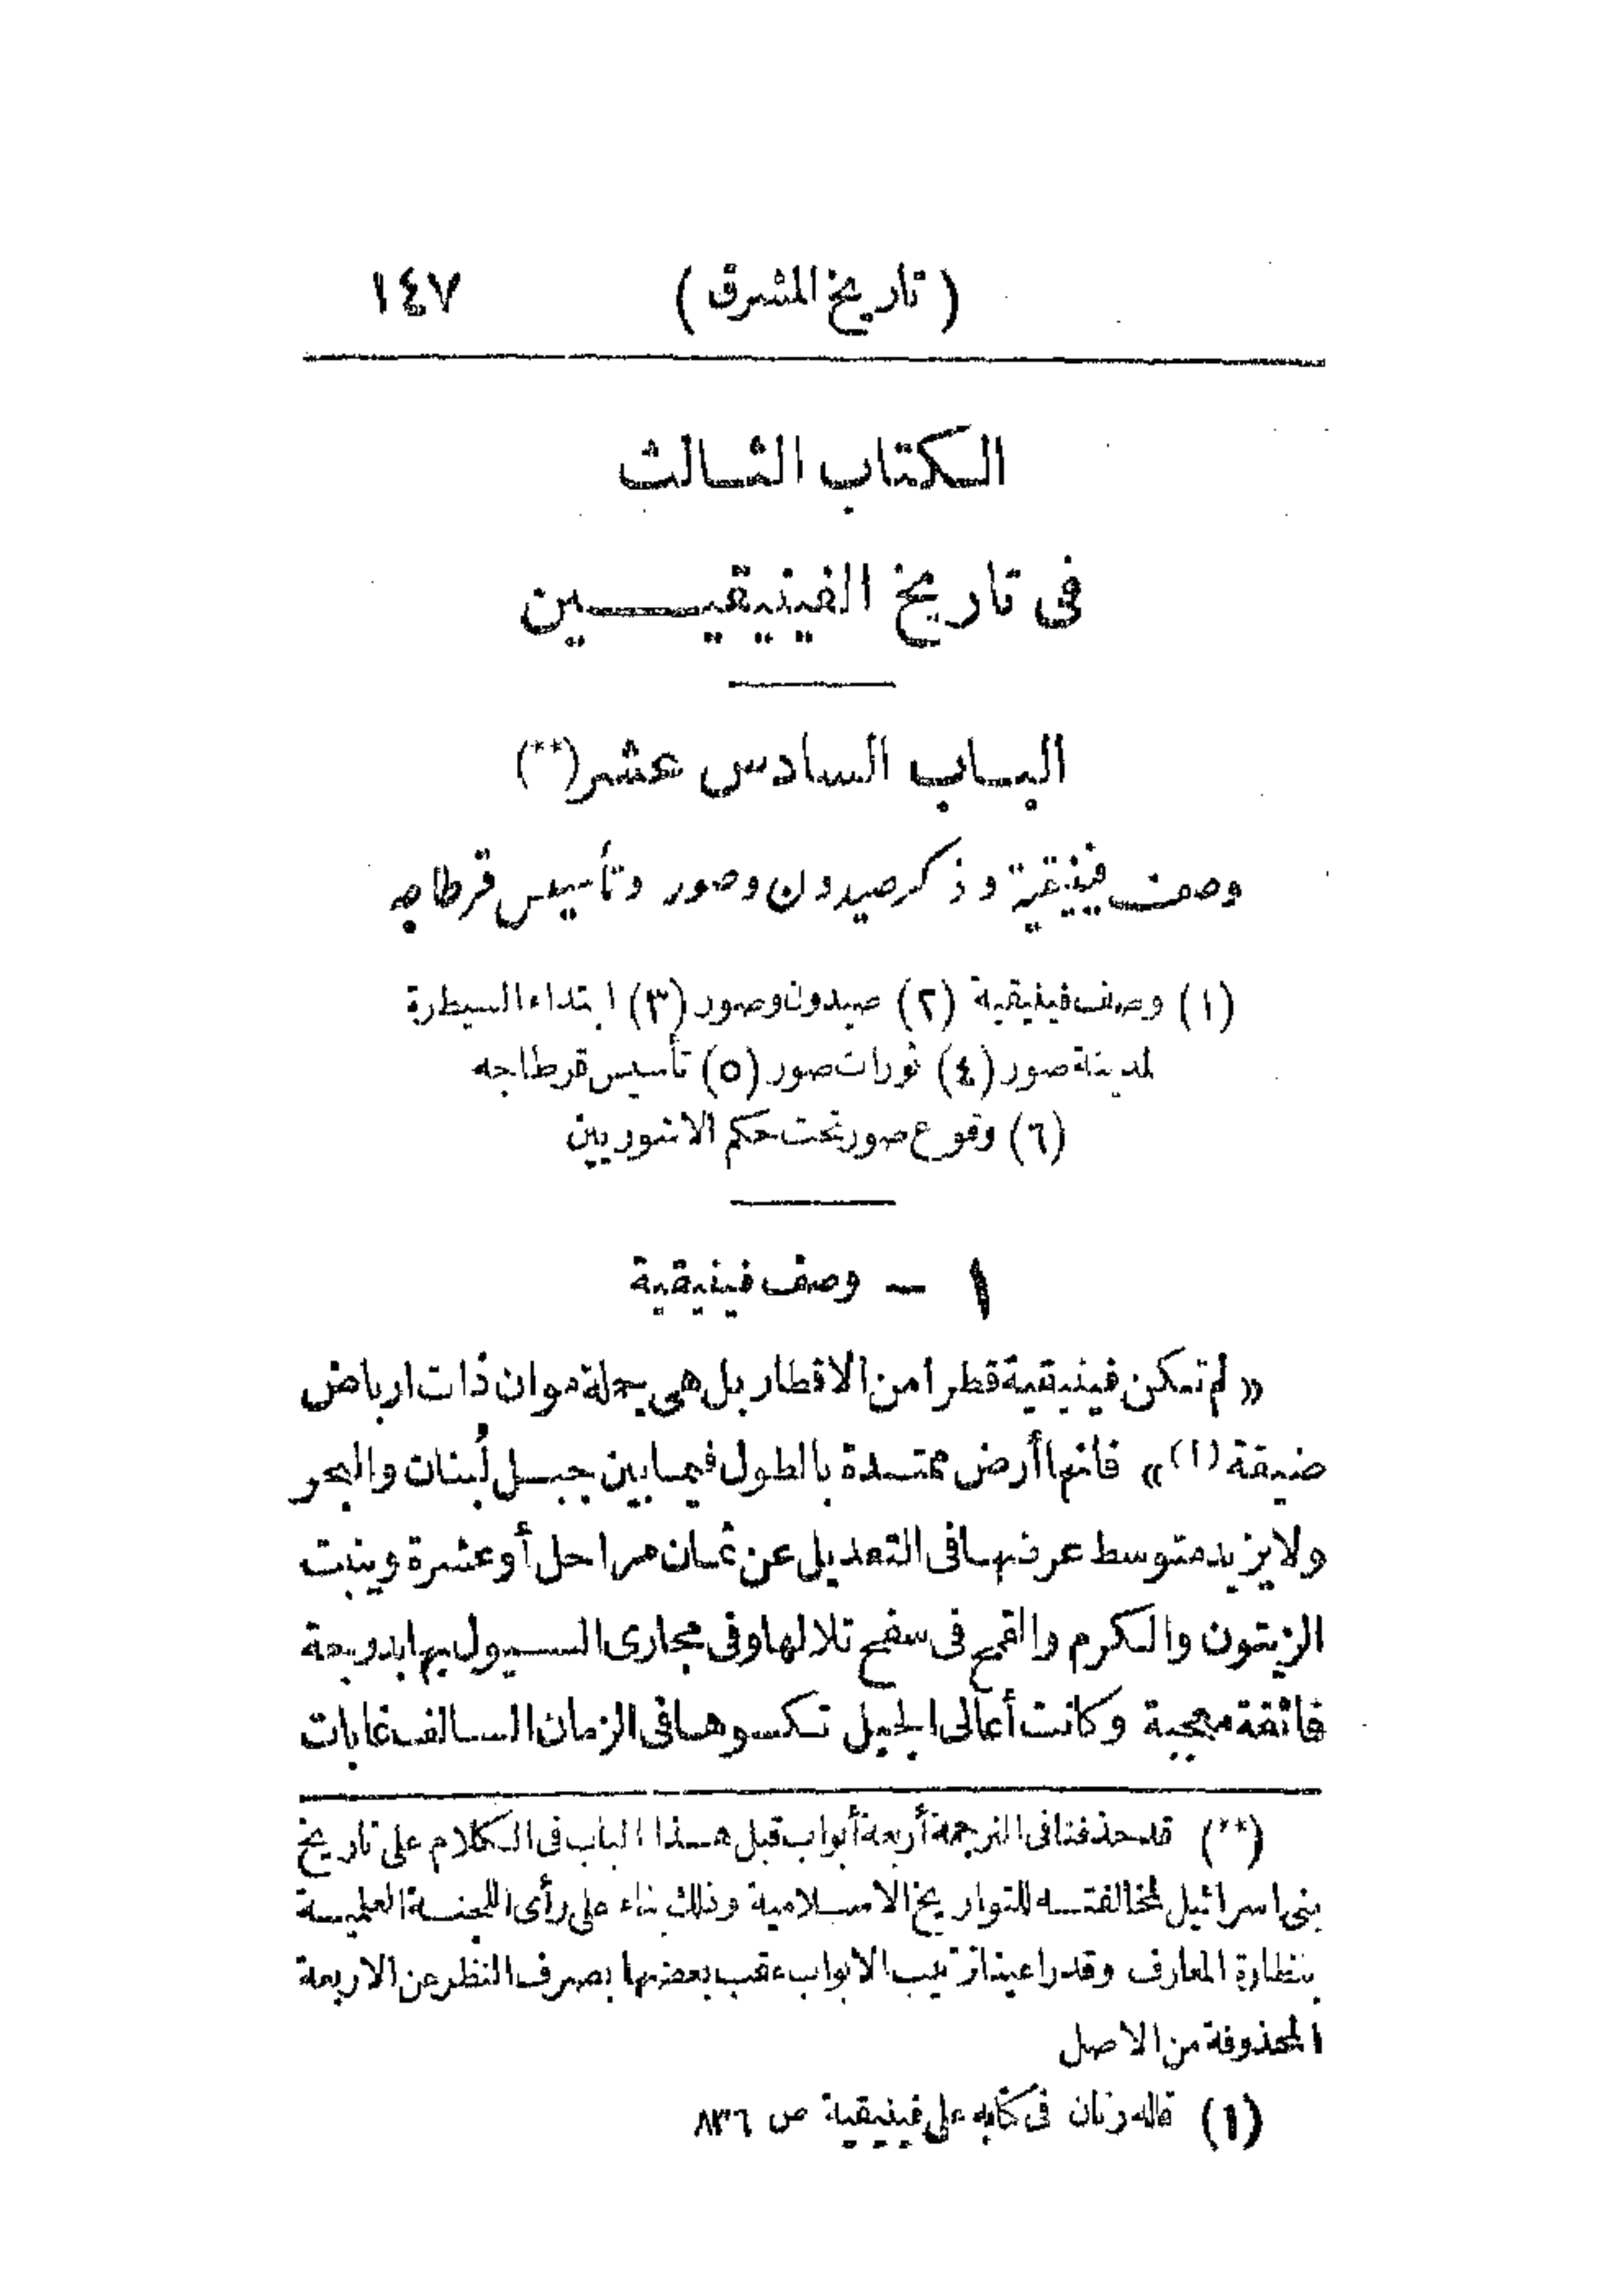 (تاريخ المشرق) ١٤٧
الكتاب الثالث
فى تاريخ الفينيقيين
الباب السادس عشر(**)
وصف فينيقية وذكر صيدون وصور وتأسيس قرطاجه
(١) وصف فينيقية (٢) صيدون وصور (٣) ابتداء السيطرة
لمدينة صور (٤) ثورات صور (٥) تأسيس قرطاجه
(٦) وقوع صور تحت حكم الاشوريين
١ – وصف فينيقية
« لم تكن فينيقية قطرا من الاقطار بل هى جملة موان ذات ارباض
ضيقة (١) » فانها أرض ممتدة بالطول فيما بين جبل لُبنان والبحر
ولا يزيد متوسط عرضها فى التعديل عن ثمان مراحل أو عشرة وينبت
الزيتون والكرم والقمح فى سفح تلالها وفى مجارى السيول بها بدويحة
فائقة معجبة وكانت أعالى الجبل تكسوها فى الزمان السالف غابات
(**) قد حذفنا فى الترجمة أربعة أبواب قبل هذا الباب فى الكلام على تاريخ
بنى اسرائيل لمخالفته للتواريخ الاسلامية وذلك بناء على رأى اللجنة العلمية
بنظارة المعارف وقد راعينا ترتيب الابواب عقب بعضها بصرف النظر عن الاربعة
المحذوفة من الاصل
(١) قاله رنان فى كتابه على فينيقية ص ٨٣٦